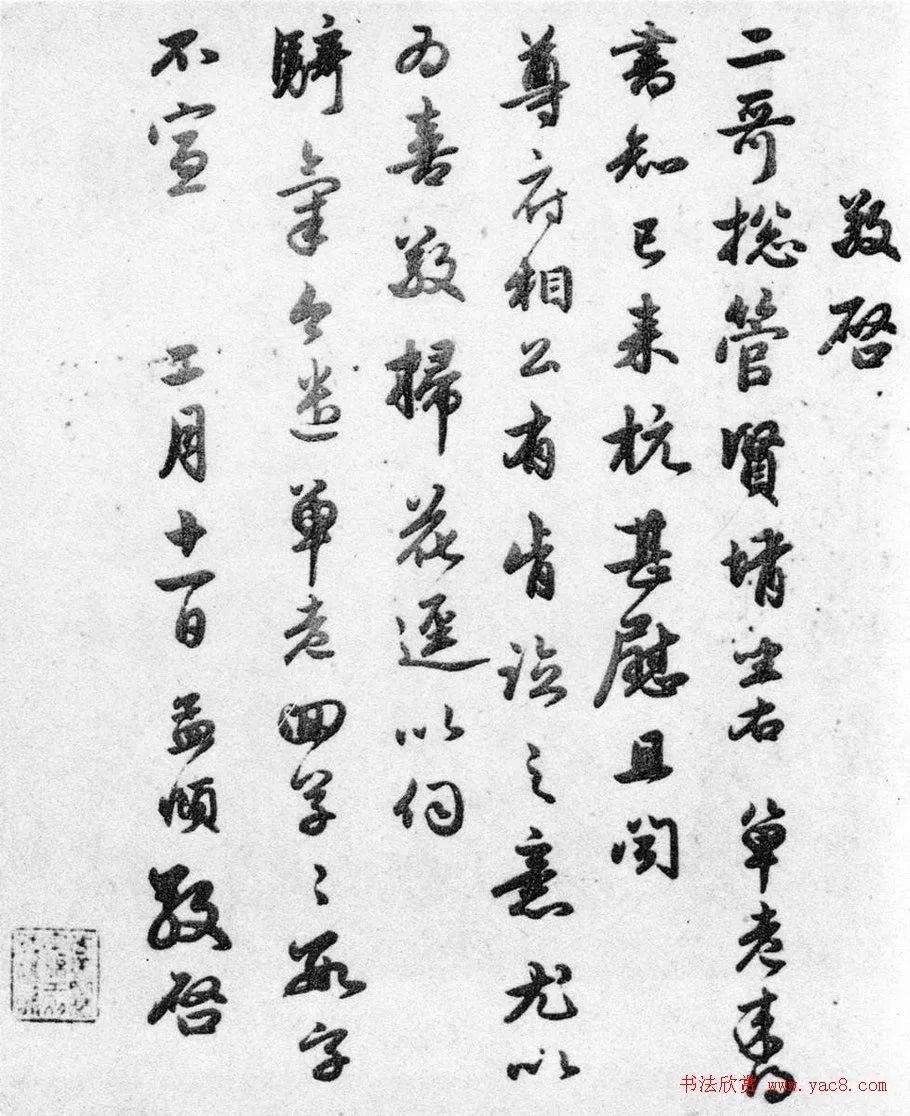 敬啓
二哥揔管賢壻坐右 單老來得
書知已來杭甚慰且聞
尊府相公有肯臨之意尤以
為喜敬掃花逕以伺
騎氣今遣單老回草々數字
不宣 月十一日 孟頫敬啓
书法欣赏 www.yac8.com